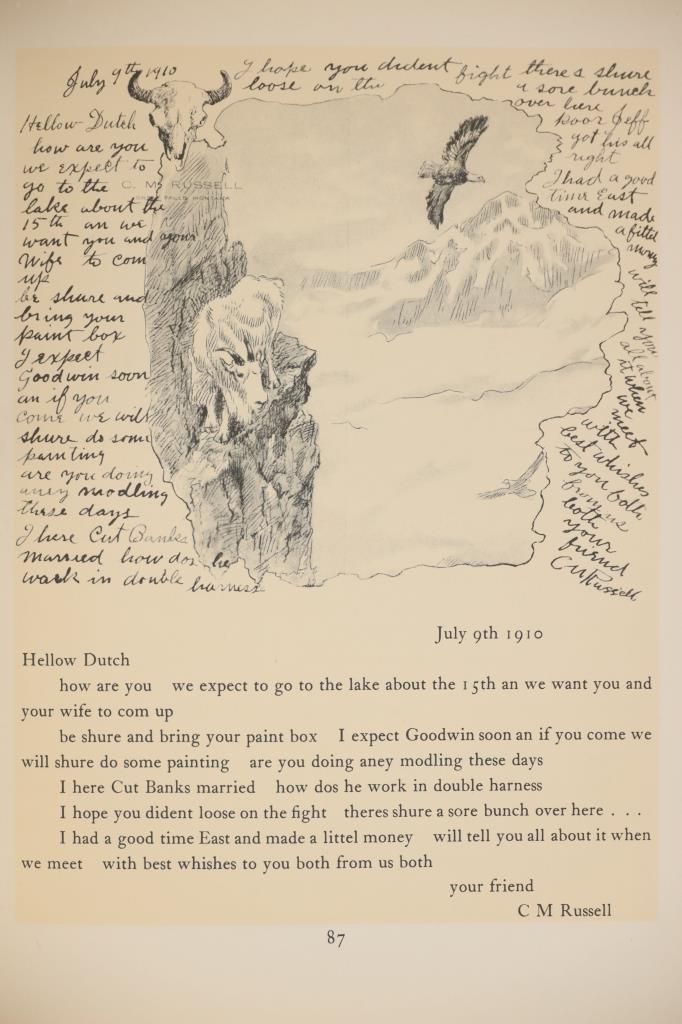 July 9th 1910
Hellow Dutch
how are you
we expect to
go to the
lake about the
15th an we
want you and your
Wife to com
up
be shure and
bring your
paint box
I expect
Goodwin soon
an if you
come we will
shure do some
painting
are you doing
aney modling
these days
I here Cut Banks
married how dos he
work in double harness
I hope you dident fight theres shure
loose on the a sore bunch
over here
poor Jeff
got his all
right
I had a good
time East
and made
a littel
money
will tell you
all about
it when
we meet
with
best whishes
to you both
from us
both
your
friend
CM Russell
C. M. RUSSELL
July 9th 1910
Hellow Dutch
how are you we expect to go to the lake about the 15th an we want you and
your wife to com up
be shure and bring your paint box I expect Goodwin soon an if you come we
will shure do some painting are you doing aney modling these days
I here Cut Banks married how dos he work in double harness
I hope you dident loose on the fight theres shure a sore bunch over here . . .
I had a good time East and made a littel money will tell you all about it when
we meet with best whishes to you both from us both
your friend
C M Russell
87